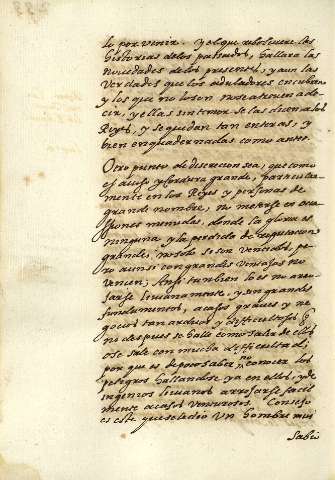 lo por venir. y el que rebolviere las
historias de los passados, hallara las
novedades de los presentes, y aun las
verdades que los aduladores encubren
y los que no lo son no se atreven a de
cir, y ellas sin temor se las dicen a los
Reyes, y se quedan tan enteras, y
bien enquadernadas como antes.
Otro punto de discrecion sea, que como
es acuso y cordura grande, particular
mente en los Reyes y personas de
grande nombre, no meterse en oca
siones menudas, donde la gloria es
ninguna y la perdida de reputacion
grande, no solo si son vencidos, pe
ro aun si con grandes ventajas no
vencen; Assi tambien lo es no arro
jarse livianamente, y sin grandes
fundamentos, a casos graves y ne
gocios tan arduos y dificultosos q
no despues se halle como salir de ellos
o se sale con mucha dificultad;
por que es de poco saber no conocer los
peligros hallandose ya en ellos, y de
ingenios livianos arrojarse facil
mente a casos venturosos. Consejo
es este que selo dio un hombre mui
Sabio